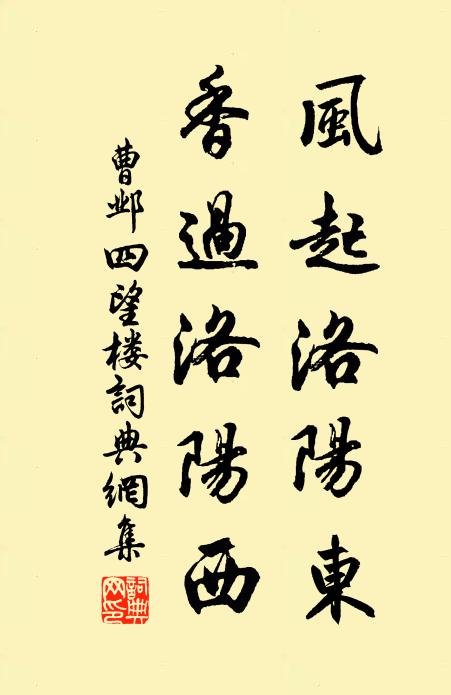 風起洛陽東
香過洛陽西
曹邺四望楼詞典網集
詞典網印